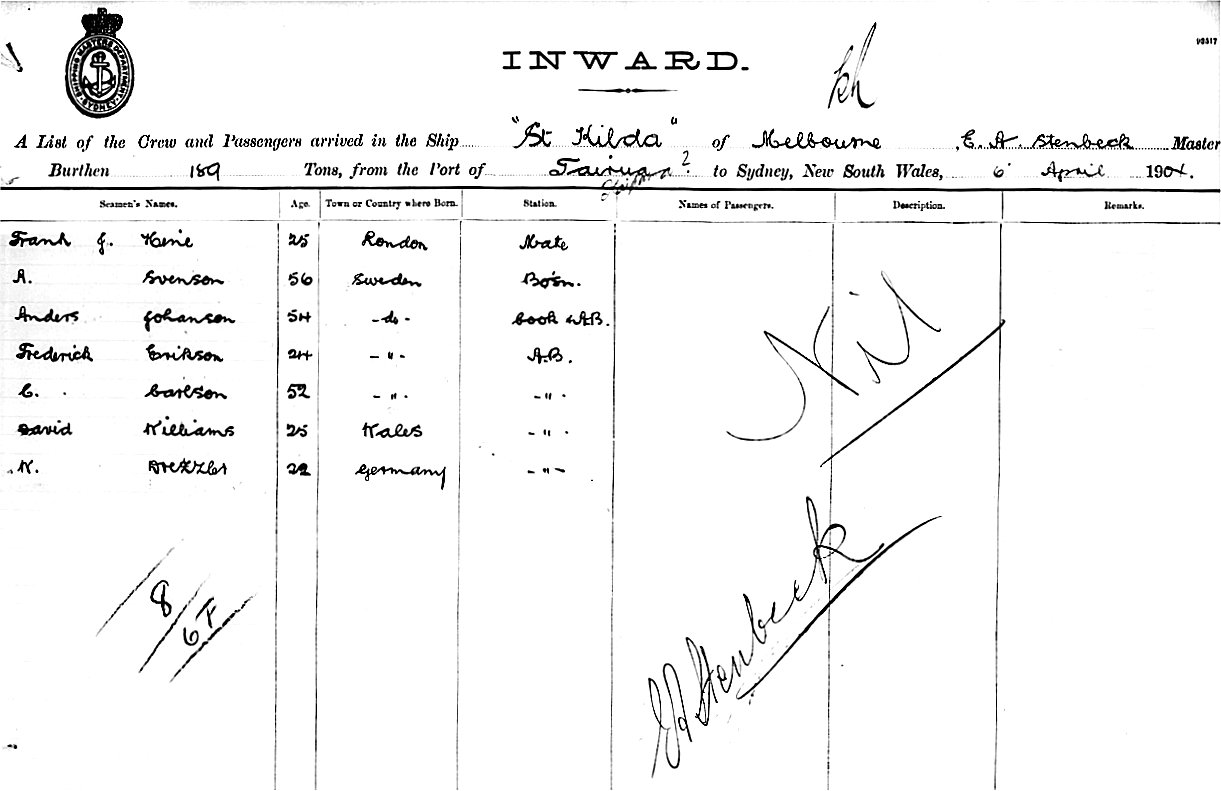 93517
SHIPPING MASTERS DEPARTMENT
SYDNEY
INWARD.
A List of the Crew and Passengers arrived in the Ship "St Kilda" of Melbourne, E. A. Stenbeck Master
Burthen 189 Tons, from the Port of Tairua ? to Sydney, New South Wales, 6 April 1904.
Seamen's Names. Age. Town or Country where Born. Station. Names of Passengers. Description. Remarks.
Frank J. 25 London Mate
A. Svenson 56 Sweden Bo'sn.
Anders Johanson 54 -do- Cook & A.B.
Frederich Erikson 24 - " - A.B.
C. Carlson 52 - " - - " -
David Williams 25 Wales - " -
W. 22 Germany - " -
Nil
8
6 F
EA Stenbeck